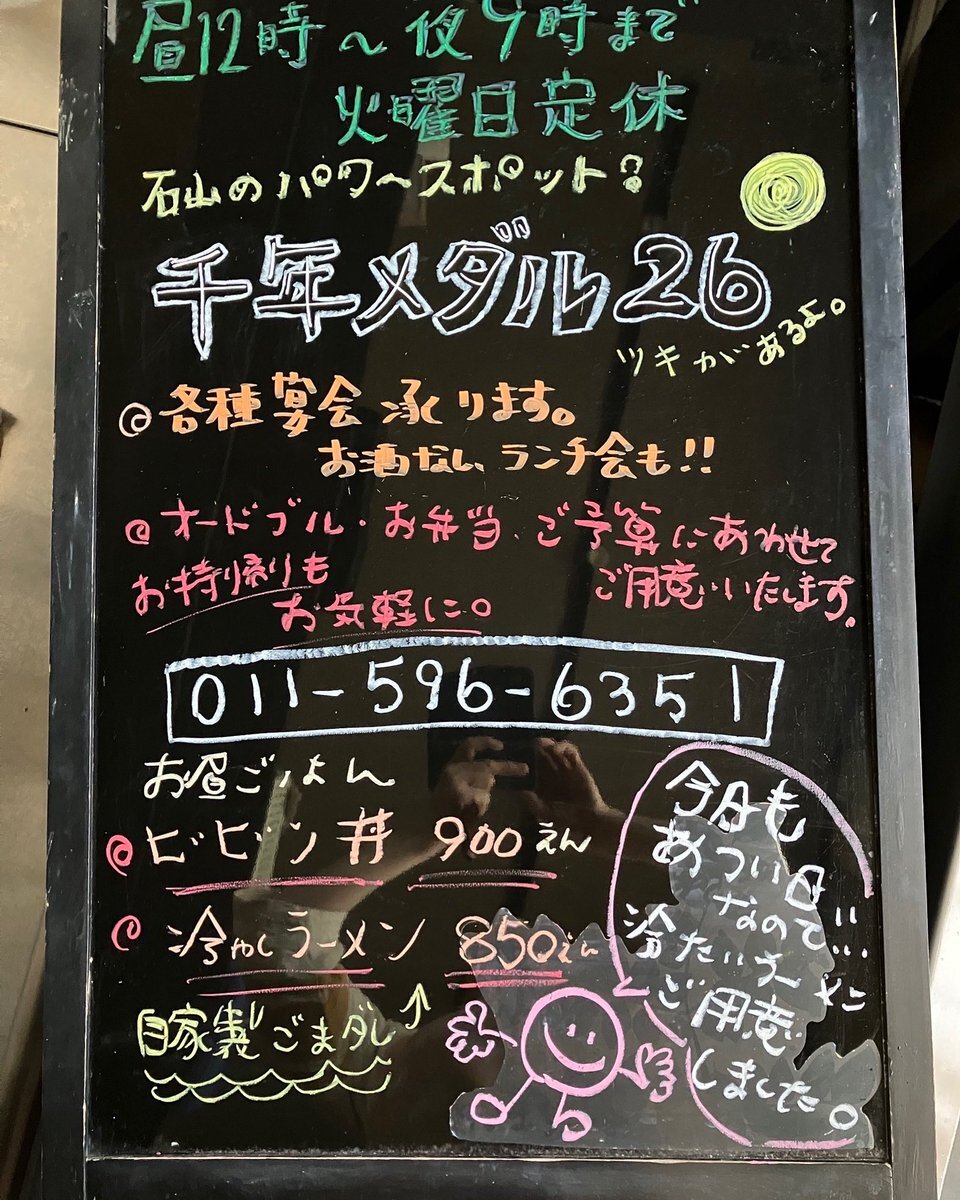 昼12時～夜9時まで
火曜日定休
石山のパワースポット!
千年メダル26
ツキがあるよ。
各種宴会承ります。
お酒なしランチ会も!!
オードブル・お弁当、ご予算にあわせて
ご用意いたします。
お持り帰りも
お気軽に。
011-596-6351
お昼ごはん
ビビン丼 900えん
冷やしラーメン 850えん
自家製ごまダレ
今日も
あつい日
なので...
冷たいラーメン
ご用意
しました。